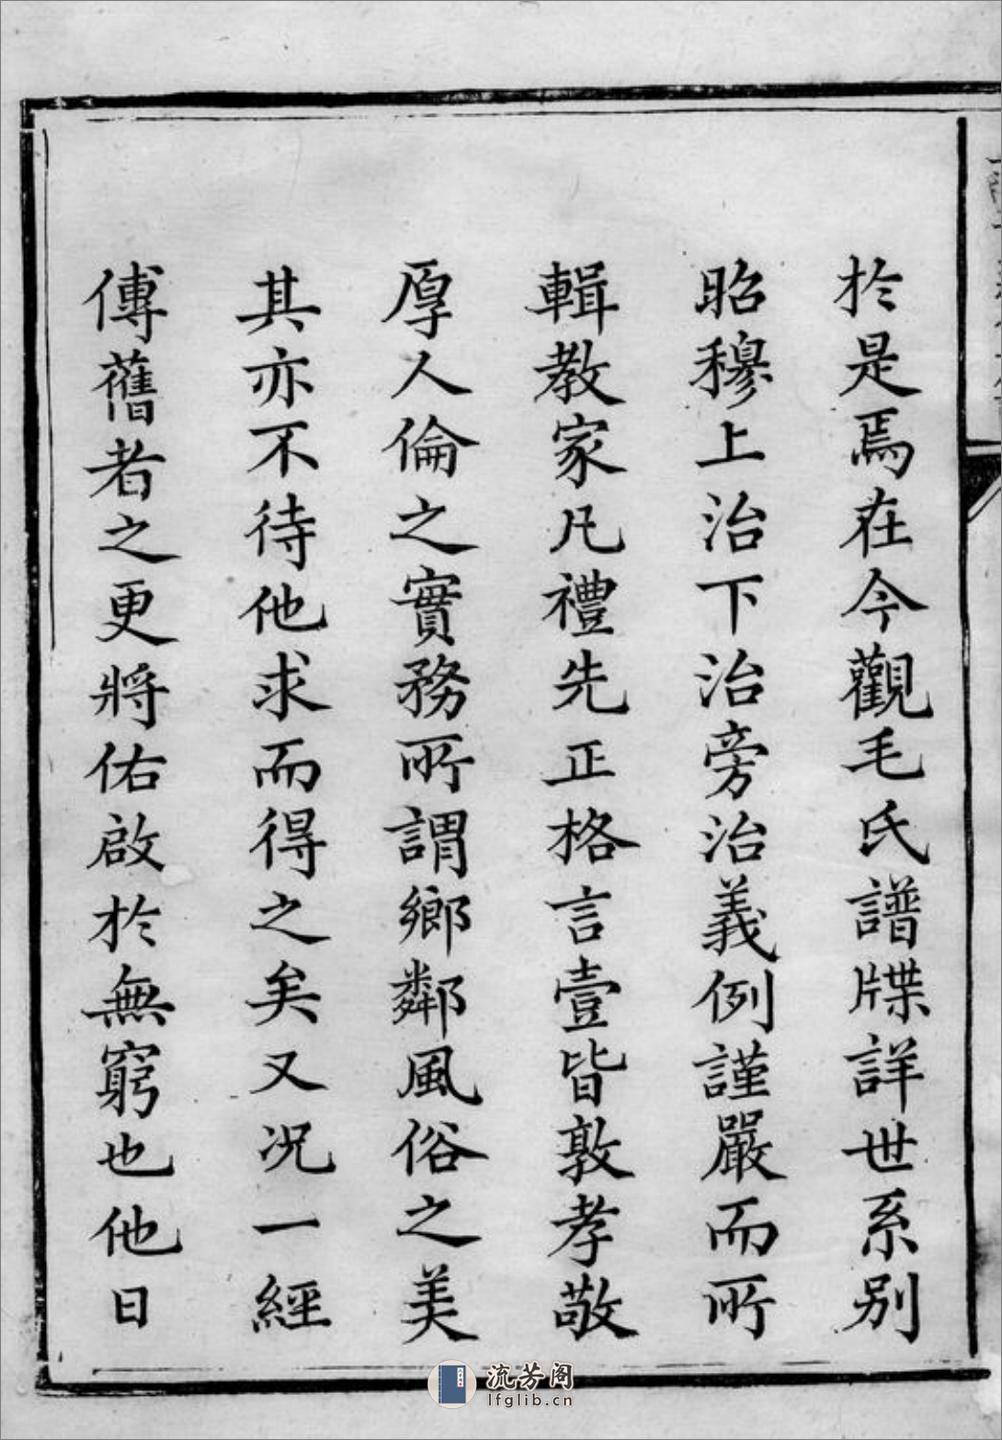 於是焉在今觀毛氏譜牒詳世系別
昭穆上治下治旁治義例謹嚴而所
輯教家凡禮先正格言壹皆敦孝敬
厚人倫之實務所謂鄉鄰風俗之美
其亦不待他求而得之矣又况一經
傳舊者之更將佑啟於無窮也他日
流芳阁
lfglib.cn